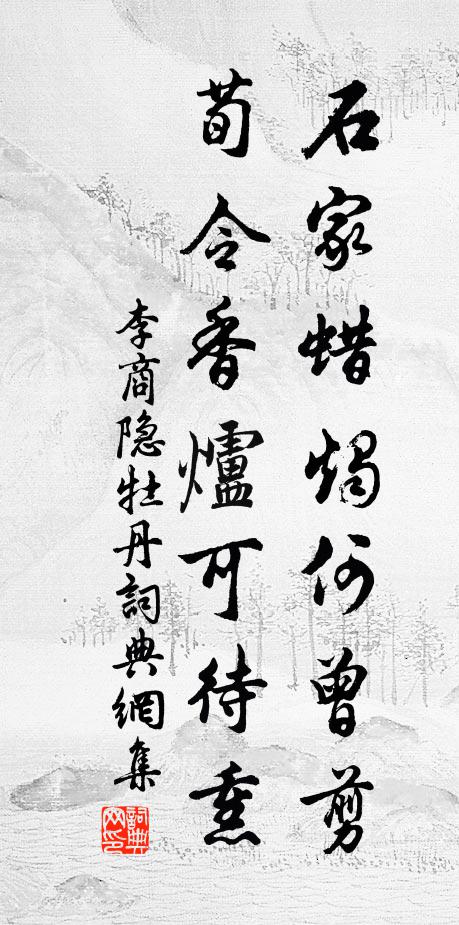 石家蜡燭何曾剪
荀令香爐可待熏
李商隐牡丹詞典網集
詞典网印